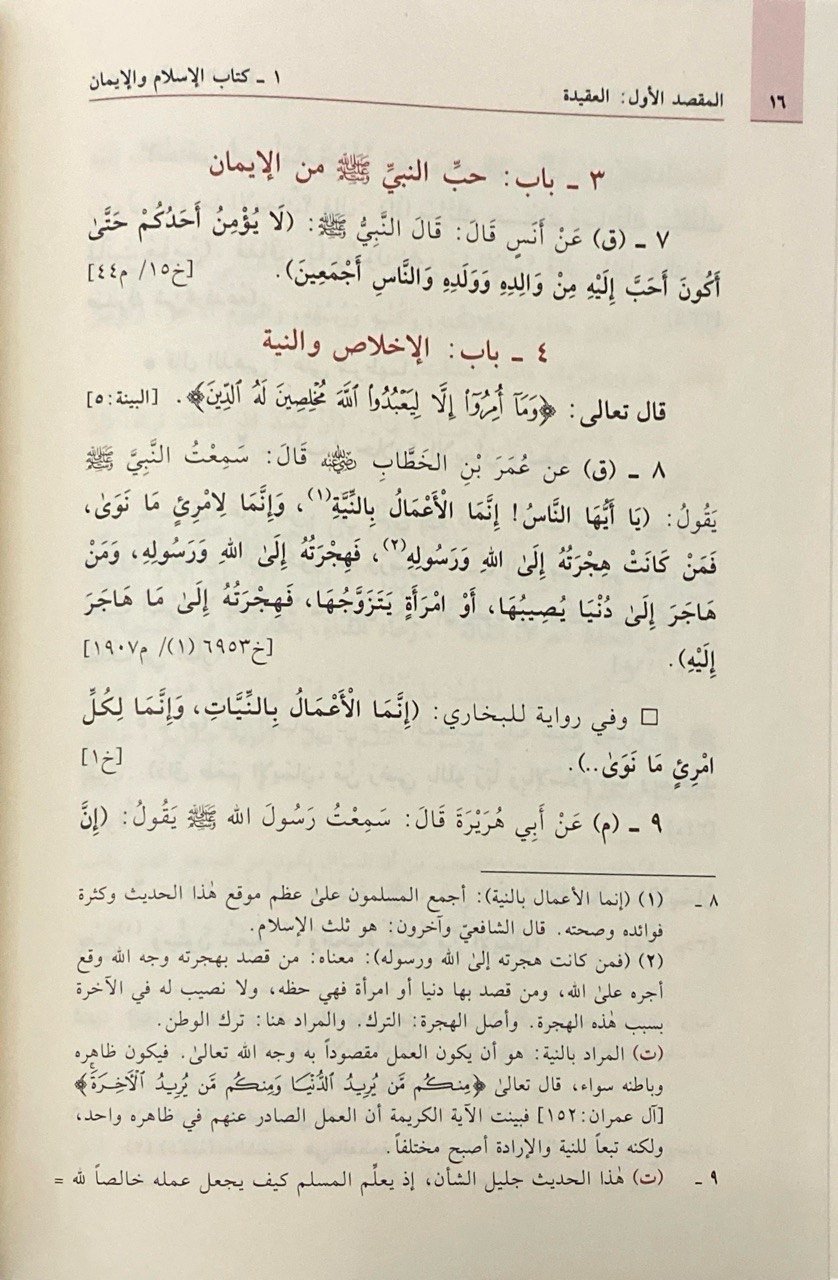 ١٦
المقصد الأول: العقيدة
١ ـ كتاب الإسلام والإيمان
٣ ـ باب: حبِّ النبيِّ ﷺ من الإيمان
٧ ـ (ق) عَنْ أَنَسٍ قَالَ: قَالَ النَّبِيُّ ﷺ: (لَا يُؤْمِنُ أَحَدُكُمْ حَتَّىٰ
أَكُونَ أَحَبَّ إِلَيْهِ مِنْ وَالِدِهِ وَوَلَدِهِ وَالنَّاسِ أَجْمَعِينَ). [خ١٥/ م٤٤]
٤ ـ باب: الإخلاص والنية
قال تعالى: ﴿وَمَآ أُمِرُوٓا۟ إِلَّا لِيَعْبُدُوا۟ ٱللَّهَ مُخْلِصِينَ لَهُ ٱلدِّينَ﴾. [البينة:٥]
٨ ـ (ق) عن عُمَرَ بْنِ الخَطَّابِ رضي الله عنه قَالَ: سَمِعْتُ النَّبِيَّ ﷺ
يَقُولُ: (يَا أَيُّهَا النَّاسُ! إِنَّمَا الْأَعْمَالُ بِالنِّيَّةِ(١)، وَإِنَّمَا لِامْرِئٍ مَا نَوَىٰ،
فَمَنْ كَانَتْ هِجْرَتُهُ إِلَىٰ اللهِ وَرَسُولِهِ(٢)، فَهِجْرَتُهُ إِلَىٰ اللهِ وَرَسُولِهِ، وَمَنْ
هَاجَرَ إِلَىٰ دُنْيَا يُصِيبُهَا، أَوْ امْرَأَةٍ يَتَزَوَّجُهَا، فَهِجْرَتُهُ إِلَىٰ مَا هَاجَرَ
إِلَيْهِ). [خ٦٩٥٣ (١)/ م١٩٠٧]
□ وفي رواية للبخاري: (إِنَّمَا الْأَعْمَالُ بِالنِّيَّاتِ، وَإِنَّمَا لِكُلِّ
امْرِئٍ مَا نَوَىٰ..). [خ١]
٩ ـ (م) عَنْ أَبِي هُرَيْرَةَ قَالَ: سَمِعْتُ رَسُولَ الله ﷺ يَقُولُ: (إِنَّ
٨ ـ (١) (إنما الأعمال بالنية): أجمع المسلمون علىٰ عظم موقع هٰذا الحديث وكثرة
فوائده وصحته. قال الشافعيّ وآخرون: هو ثلث الإسلام.
(٢) (فمن كانت هجرته إلىٰ الله ورسوله): معناه: من قصد بهجرته وجه الله وقع
أجره علىٰ الله، ومن قصد بها دنيا أو امرأة فهي حظه، ولا نصيب له في الآخرة
بسبب هٰذه الهجرة. وأصل الهجرة: الترك. والمراد هنا: ترك الوطن.
(ت) المراد بالنية: هو أن يكون العمل مقصوداً به وجه الله تعالىٰ. فيكون ظاهره
وباطنه سواء، قال تعالىٰ ﴿مِنكُم مَّن يُرِيدُ ٱلدُّنْيَا وَمِنكُم مَّن يُرِيدُ ٱلْآخِرَةَ﴾
[آل عمران:١٥٢] فبينت الآية الكريمة أن العمل الصادر عنهم في ظاهره واحد،
ولكنه تبعاً للنية والإرادة أصبح مختلفاً.
٩ ـ (ت) هٰذا الحديث جليل الشأن، إذ يعلِّم المسلم كيف يجعل عمله خالصاً لله =